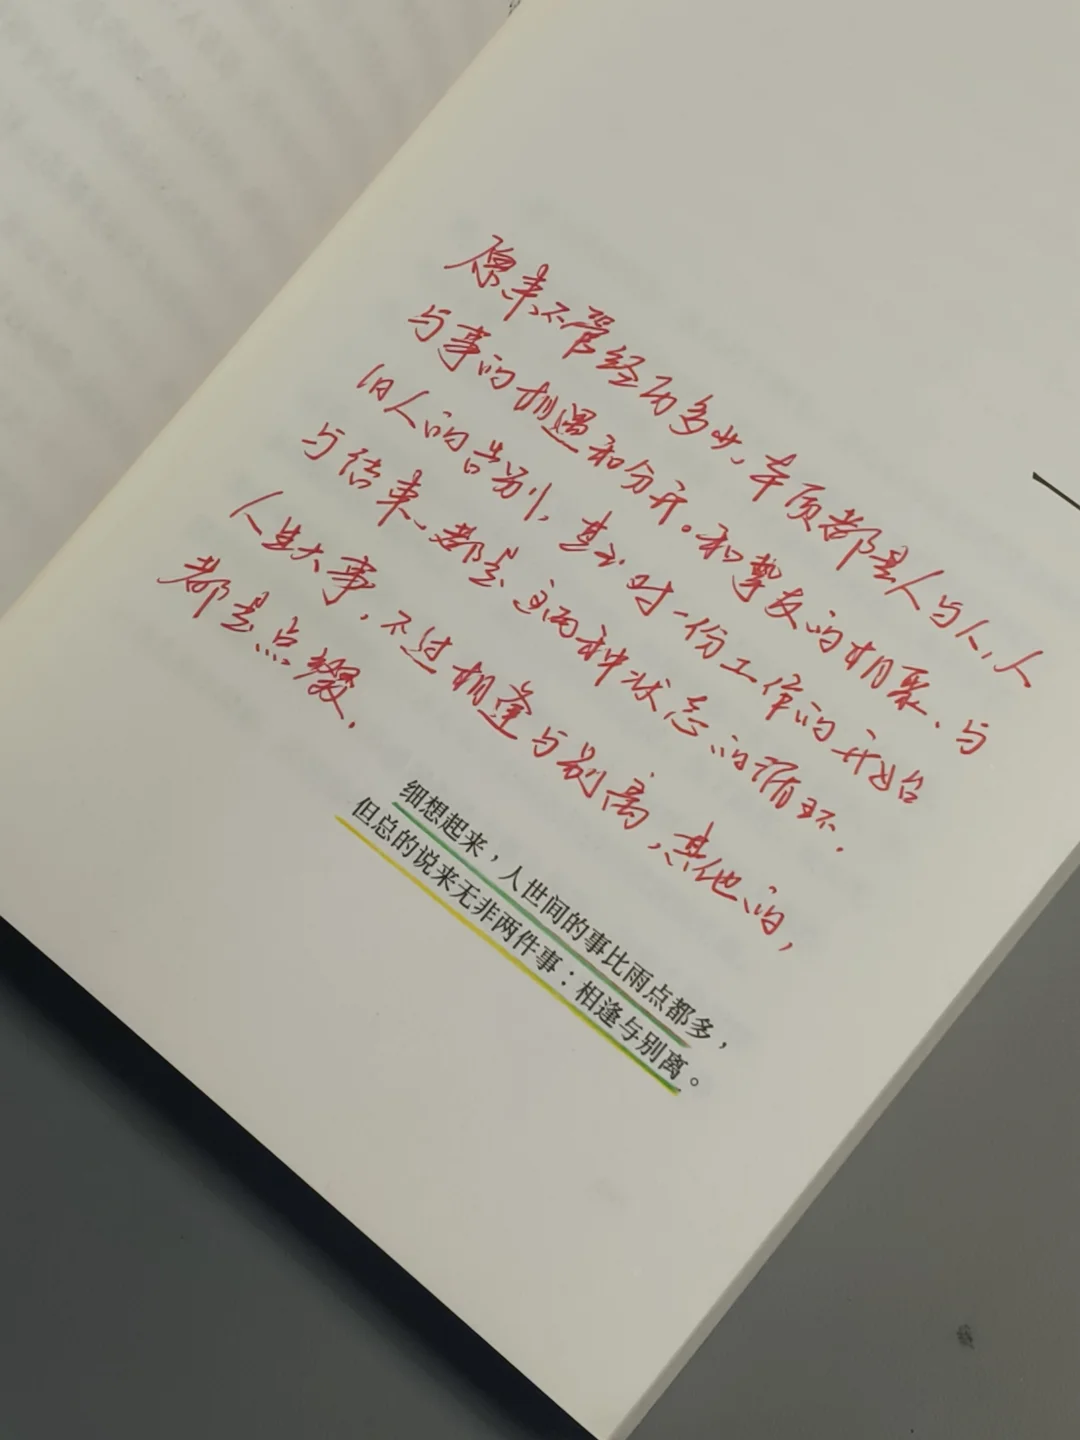 原来不管经历多少，本质都是人与人，人
与事的相遇和分开。和挚友的相聚、与
旧人的告别，甚至对一份工作的开始
与结束、都是这两种状态的循环.
人生大事，不过相逢与别离，其他的，
都是点缀.
细想起来，人世间的事比雨点都多，
但总的说来无非两件事：相逢与别离。